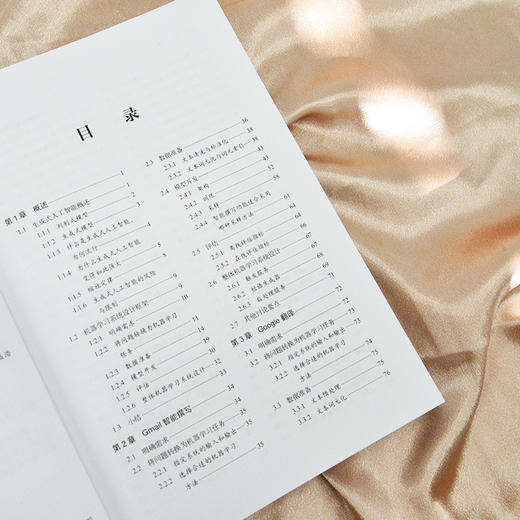 目 录
第 1 章 概述 1
1.1 生成式人工智能概述 1
1.1.1 判别式模型
1.1.2 生成式模型
1.1.3 什么是生成式人工智能,
为何流行
1.1.4 为什么生成式人工智能
变得如此强大
1.1.5 缩放定律
1.1.6 生成式人工智能的风险
与限制 9
1.2 机器学习系统设计框架 9
1.2.1 明确需求 10
1.2.2 将问题转换为机器学习
任务 11
1.2.3 数据准备 14
1.2.4 模型开发 19
1.2.5 评估 30
1.2.6 整体机器学习系统设计 32
1.3 小结 33
第 2 章 Gmail 智能撰写 34
2.1 明确需求 34
2.2 将问题转换为机器学习任务 35
2.2.1 指定系统的输入和输出 35
2.2.2 选择合适的机器学习
方法 35
2.3 数据准备 36
2.3.1 文本清洗与标准化 36
2.3.2 文本词元化与词元索引 38
2.4 模型开发 43
2.4.1 架构 43
2.4.2 训练 52
2.4.3 采样 58
2.4.4 智能撰写功能适合采用
哪种采样方法 61
2.5 评估 64
2.5.1 离线评估指标 64
2.5.2 在线评估指标 67
2.6 整体机器学习系统设计
2.6.1 触发服务
2.6.2 短语生成器
2.6.3 后处理服务 71
2.7 其他讨论要点 72
第 3 章 Google 翻译 73
3.1 明确需求 73
3.2 将问题转换为机器学习任务 74
3.2.1 指定系统的输入和输出
3.2.2 选择合适的机器学习
方法 75
3.3 数据准备 75
3.3.1 文本预处理 75
3.3.2 文本词元化 76